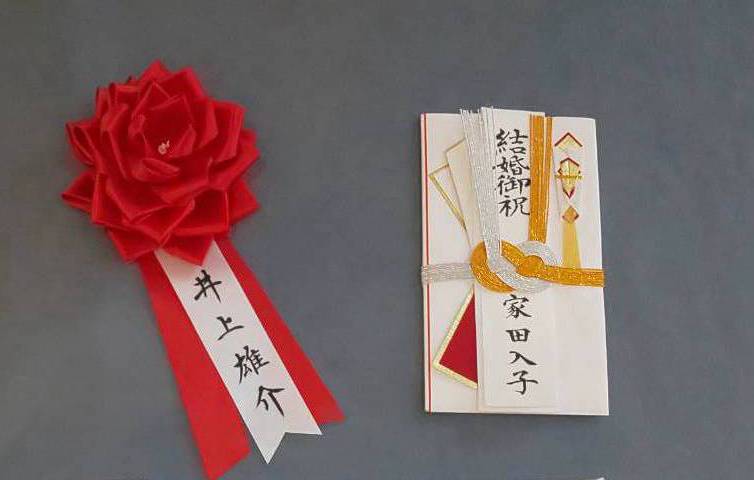 井上雄介
結婚御祝
家田入子